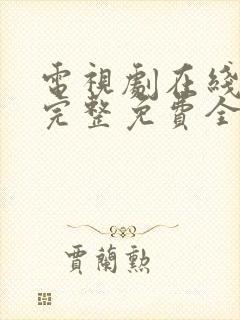 電視劇在綫
完整免費全
賈蘭勲